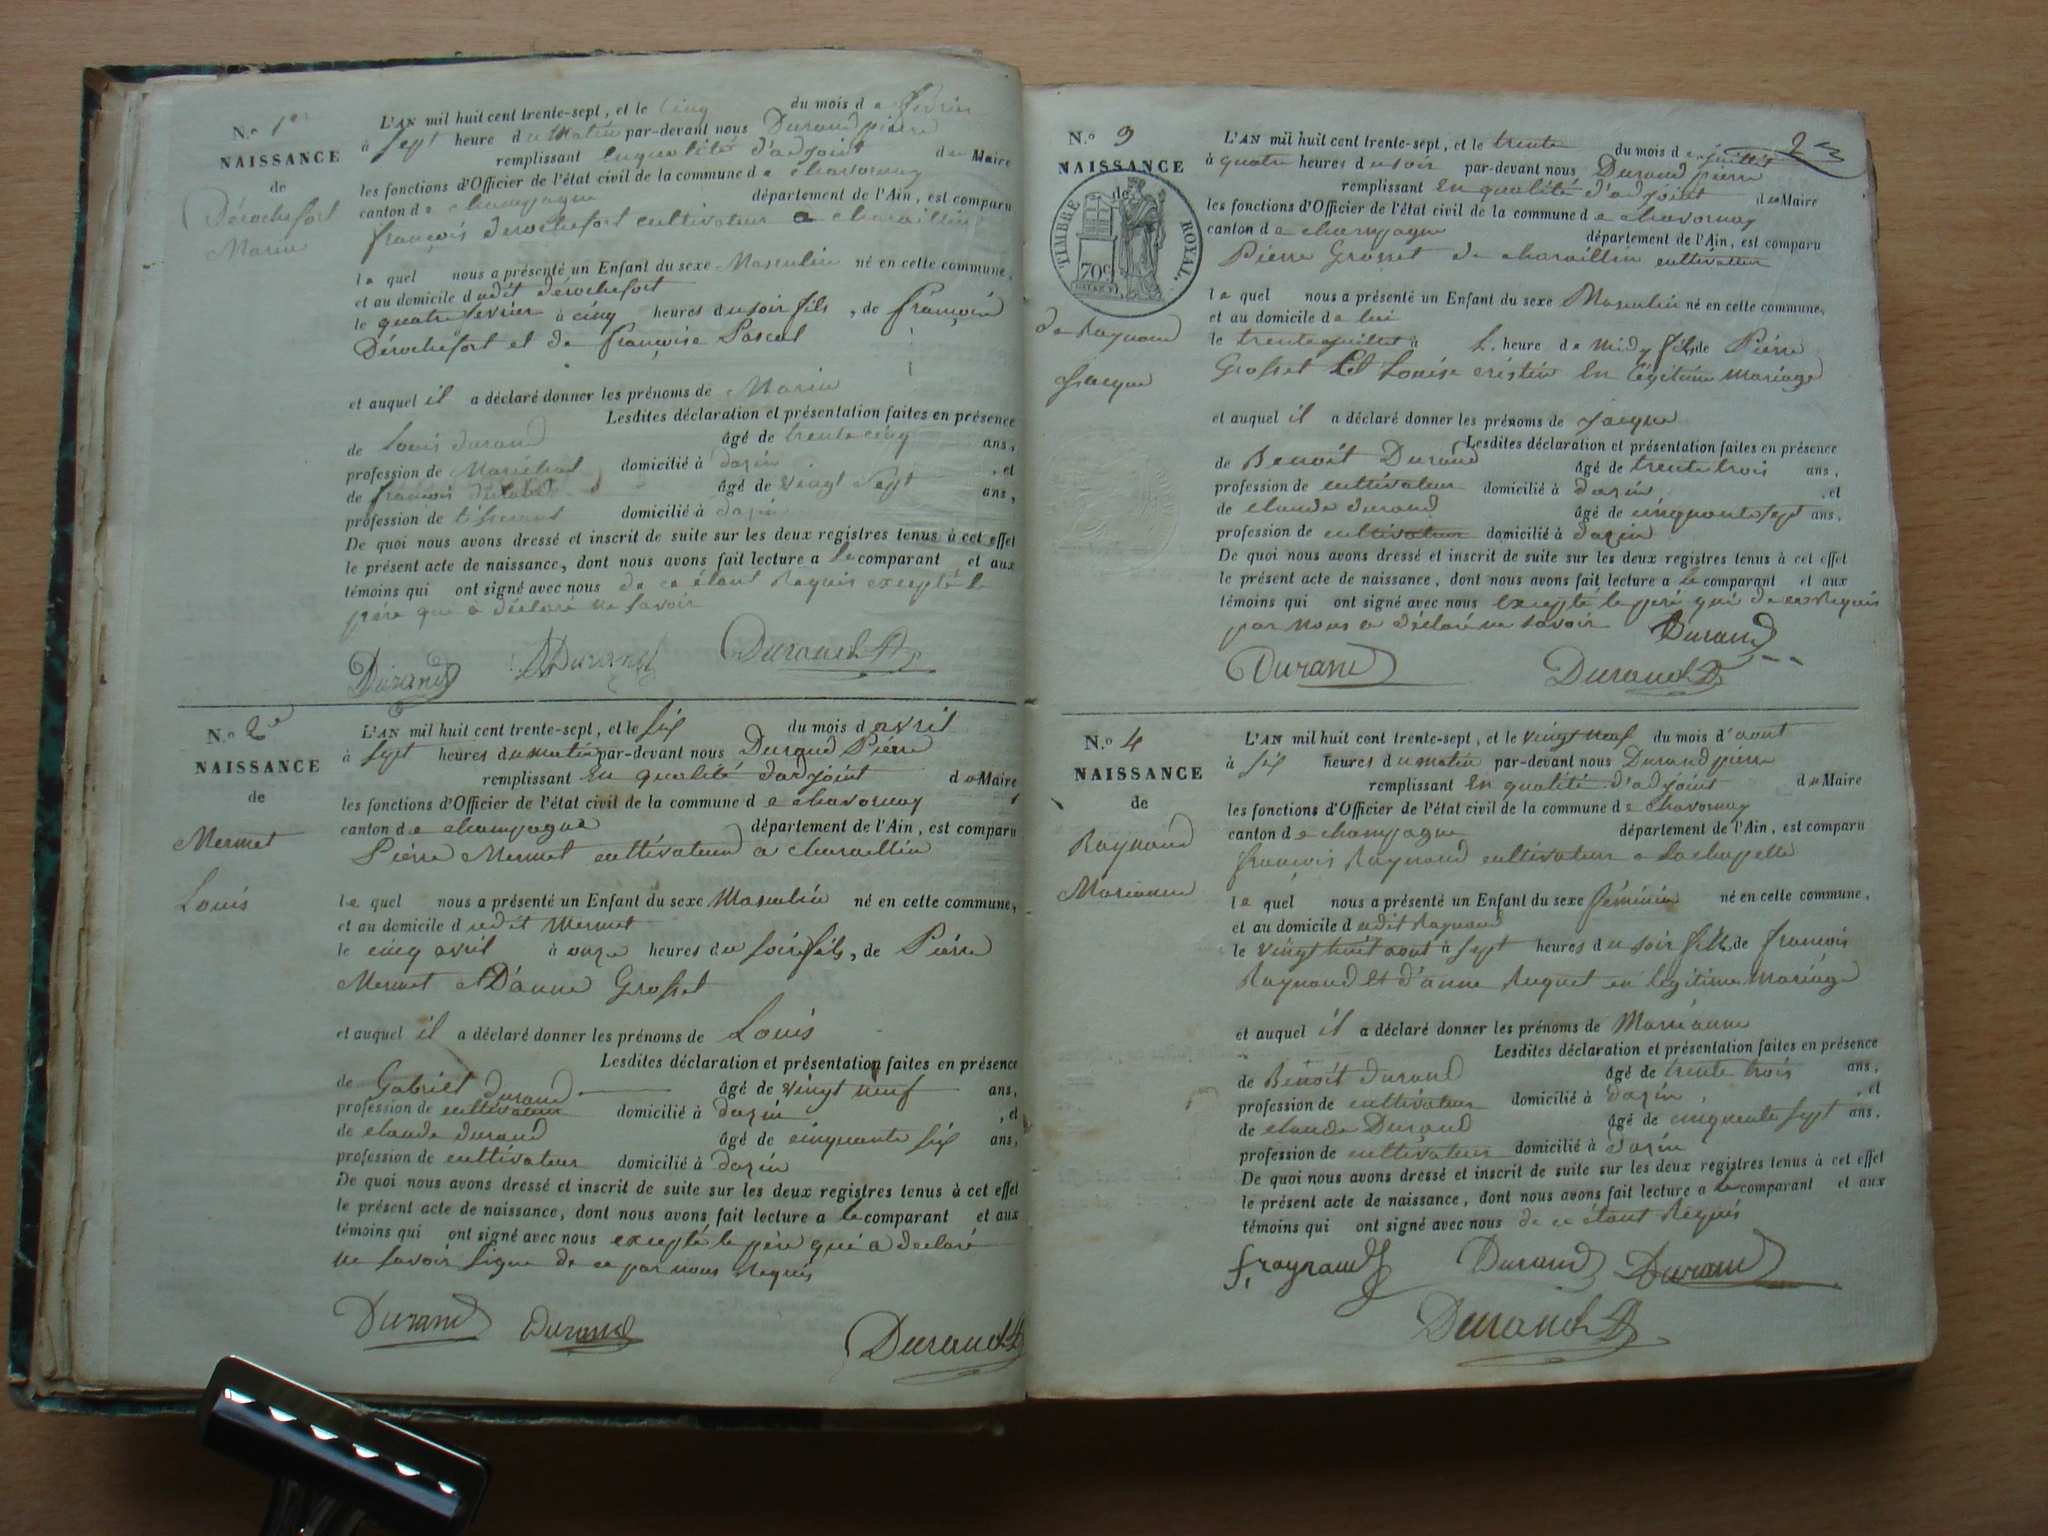 N.o 1er
NAISSANCE
de
Dérochefort
Marin
L'AN mil huit cent trente-sept, et le cinq du mois de février
à sept heure du matin par-devant nous Durand pierre
remplissant en qualité d'adjoint du Maire
les fonctions d'Officier de l'état civil de la commune de chavornay
canton de champagne département de l'Ain, est comparu
françois derochefort cultivateur a charaillin
le quel nous a présenté un Enfant du sexe Masculin né en cette commune,
et au domicile dudit dérochefort
le quatre février à cinq heures du soir fils, de françois
Dérochefort et de françoise Pascal
et auquel il a déclaré donner les prénoms de Marin
Lesdites déclaration et présentation faites en présence
de Louis durand âgé de trente cinq ans,
profession de Maréchal domicilié à dazin, et
de françois âgé de vingt sept ans,
profession de tisserand domicilié à dazin
De quoi nous avons dressé et inscrit de suite sur les deux registres tenus à cet effet
le présent acte de naissance, dont nous avons fait lecture a le comparant et aux
témoins qui ont signé avec nous de ce étant Requis excepté le
père qui a déclaré ne savoir
Durand Durand Durand
N.o 2e
NAISSANCE
de
Mermet
Louis
L'AN mil huit cent trente-sept, et le six du mois d avril
à sept heures du matin par-devant nous Durand Pierre
remplissant en qualité dadjoint du Maire
les fonctions d'Officier de l'état civil de la commune de chavornay
canton de champagne département de l'Ain, est comparu
Pierre Mermet cultivateur a charaillin
le quel nous a présenté un Enfant du sexe Masculin né en cette commune,
et au domicile dudit Mermet
le cinq avril à onze heures du soir fils, de Pierre
Mermet et D'anne Grosset
et auquel il a déclaré donner les prénoms de Louis
Lesdites déclaration et présentation faites en présence
de Gabriel durand âgé de vingt neuf ans,
profession de cultivateur domicilié à dazin, et
de claude durand âgé de cinquante six ans,
profession de cultivateur domicilié à dazin
De quoi nous avons dressé et inscrit de suite sur les deux registres tenus à cet effet
le présent acte de naissance, dont nous avons fait lecture a le comparant et aux
témoins qui ont signé avec nous excepté le père qui a declaré
ne savoir signe de ce par nous Requis
Durand Durand Durand
2
N.o 3
NAISSANCE
de
TIMBRE ROYAL
70c
de Raynaud
Jacque
L'AN mil huit cent trente-sept, et le trente du mois de juillet
à quatre heures du soir par-devant nous Durand pierre
remplissant en qualité d'adjoint du Maire
les fonctions d'Officier de l'état civil de la commune de chavornay
canton de champagne département de l'Ain, est comparu
Pierre Grosset de charaillin cultivateur
le quel nous a présenté un Enfant du sexe Masculin né en cette commune,
et au domicile de lui
le trente juillet à heure de midy fils de Pierre
Grosset Et Louise cristin En légitime Mariage
et auquel il a déclaré donner les prénoms de jacque
Lesdites déclaration et présentation faites en présence
de Benoit Durand âgé de trente trois ans,
profession de cultivateur domicilié à dazin, et
de claude durand âgé de cinquante sept ans,
profession de cultivateur domicilié à dazin
De quoi nous avons dressé et inscrit de suite sur les deux registres tenus à cet effet
le présent acte de naissance, dont nous avons fait lecture a le comparant et aux
témoins qui ont signé avec nous excepté le père qui de ce Requis
par nous a déclaré ne savoir Durand
Durand Durand
N.o 4
NAISSANCE
de
Raynaud
Marianne
L'AN mil huit cent trente-sept, et le vingt neuf du mois d'aout
à six heures du matin par-devant nous Durand pierre
remplissant en qualité d'adjoint du Maire
les fonctions d'Officier de l'état civil de la commune de chavornay
canton de champagne département de l'Ain, est comparu
françois Raynaud cultivateur a Lachapelle
le quel nous a présenté un Enfant du sexe féminin né en cette commune,
et au domicile dudit Raynaud
le vingt huit aout à sept heures du soir fille de françois
Raynaud Et d'anne Ruguet en légitime Mariage
et auquel il a déclaré donner les prénoms de Marianne
Lesdites déclaration et présentation faites en présence
de Benoit durand âgé de trente trois ans,
profession de cultivateur domicilié à dazin, et
de claude Durand âgé de cinquente sept ans,
profession de cultivateur domicilié à dazin
De quoi nous avons dressé et inscrit de suite sur les deux registres tenus à cet effet
le présent acte de naissance, dont nous avons fait lecture a le comparant et aux
témoins qui ont signé avec nous de ce étant Requis
f. raynaud Durand Durand
Durand